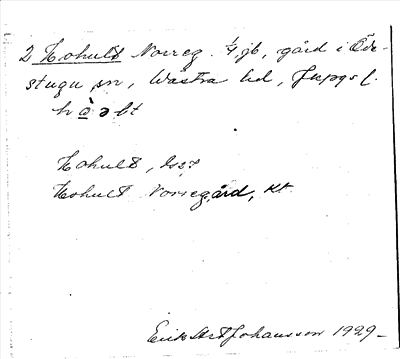 2 Hohult Norreg. 1/4 jb, gård i Öde-
stugu sn, Wästra hd, Jkpgs l.
Hohult,
Hohult Norregård, kt.
Erik Johansson 1929